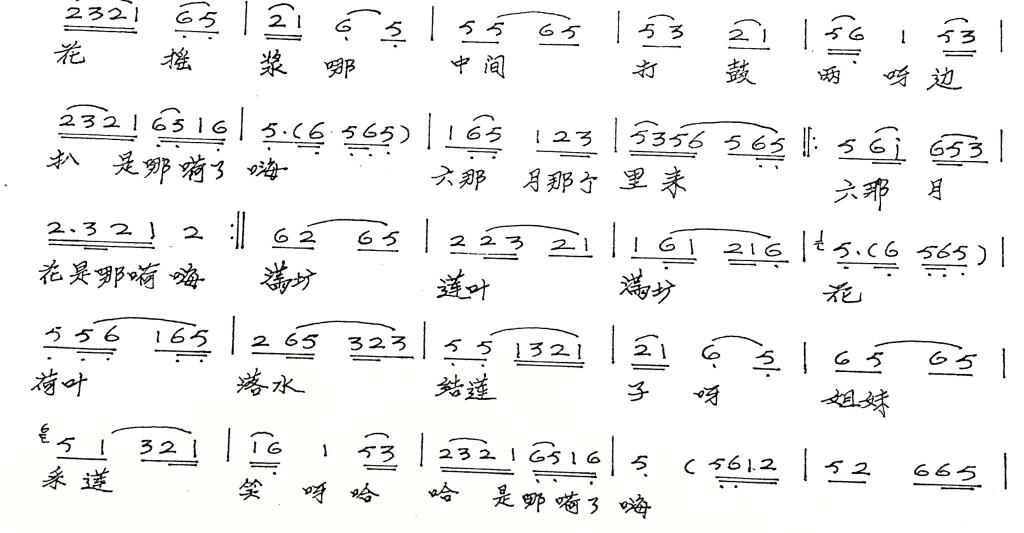 2321 65 | 21 6 5 | 55 65 | 53 21 | 56 1 53 |
花 摇 浆 哪 中间 打 鼓 两 呀 边
2321 6516 | 5.(6 565) | 165 123 | 5356 565 ‖: 56i 653 |
扒 是哪嗬了 嗨 六那 月那个 里来 六那 月
2.321 2 :‖ 62 65 | 223 21 | 161 216 | 5.(6 565) |
花是哪嗬 嗨 满坊 莲叶 满坊 花
556 165 | 265 323 | 55 1321 | 21 6 5 | 65 65 |
荷叶 落水 结莲 子 呀 姐妹
51 321 | 16 1 53 | 2321 6516 | 5. (561.2 | 52 665 |
采莲 笑 呀哈 哈 是哪嗬了 嗨